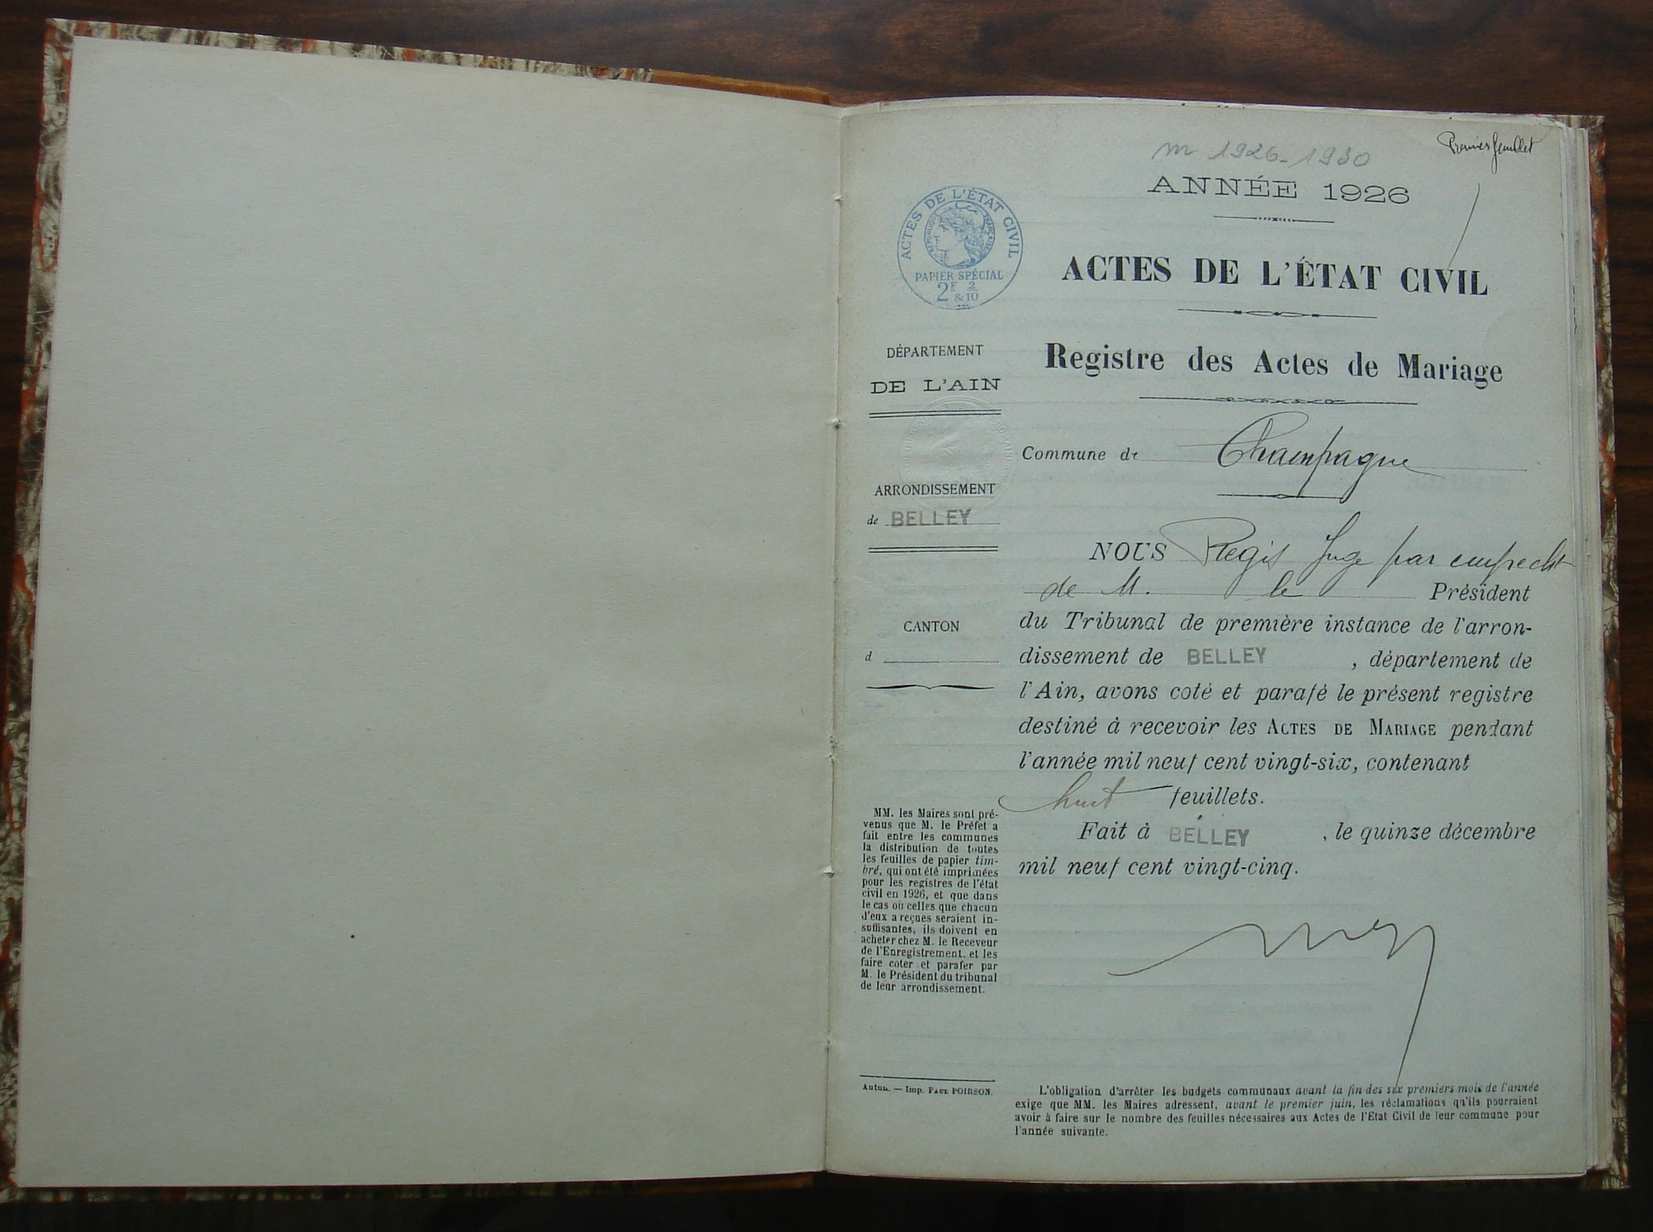 m 1926-1930
Premier feuillet
ANNÉE 1926
ACTES DE L'ÉTAT CIVIL
RÉPUBLIQUE FRANÇAISE
PAPIER SPÉCIAL
2F 2
& 10
ACTES DE L'ÉTAT CIVIL
Registre des Actes de Mariage
DÉPARTEMENT
DE L'AIN
ARRONDISSEMENT
de BELLEY
CANTON
d
Commune de Champagne
NOUS Régis Juge par empecht
de M. le Président
du Tribunal de première instance de l'arron-
dissement de BELLEY, département de
l'Ain, avons coté et parafé le présent registre
destiné à recevoir les ACTES DE MARIAGE pendant
l'année mil neuf cent vingt-six, contenant
huit feuillets.
Fait à BELLEY, le quinze décembre
mil neuf cent vingt-cinq.
MM. les Maires sont pré-
venus que M. le Préfet a
fait entre les communes
la distribution de toutes
les feuilles de papier tim-
bré, qui ont été imprimées
pour les registres de l'état
civil en 1926, et que dans
le cas où celles que chacun
d'eux a reçues seraient in-
suffisantes, ils doivent en
acheter chez M. le Receveur
de l'Enregistrement, et les
faire coter et parafer par
M. le Président du tribunal
de leur arrondissement.
Autun. — Imp. PAUL POIRSON.
L'obligation d'arrêter les budgets communaux avant la fin des six premiers mois de l'année
exige que MM. les Maires adressent, avant le premier juin, les réclamations qu'ils pourraient
avoir à faire sur le nombre des feuilles nécessaires aux Actes de l'Etat Civil de leur commune pour
l'année suivante.